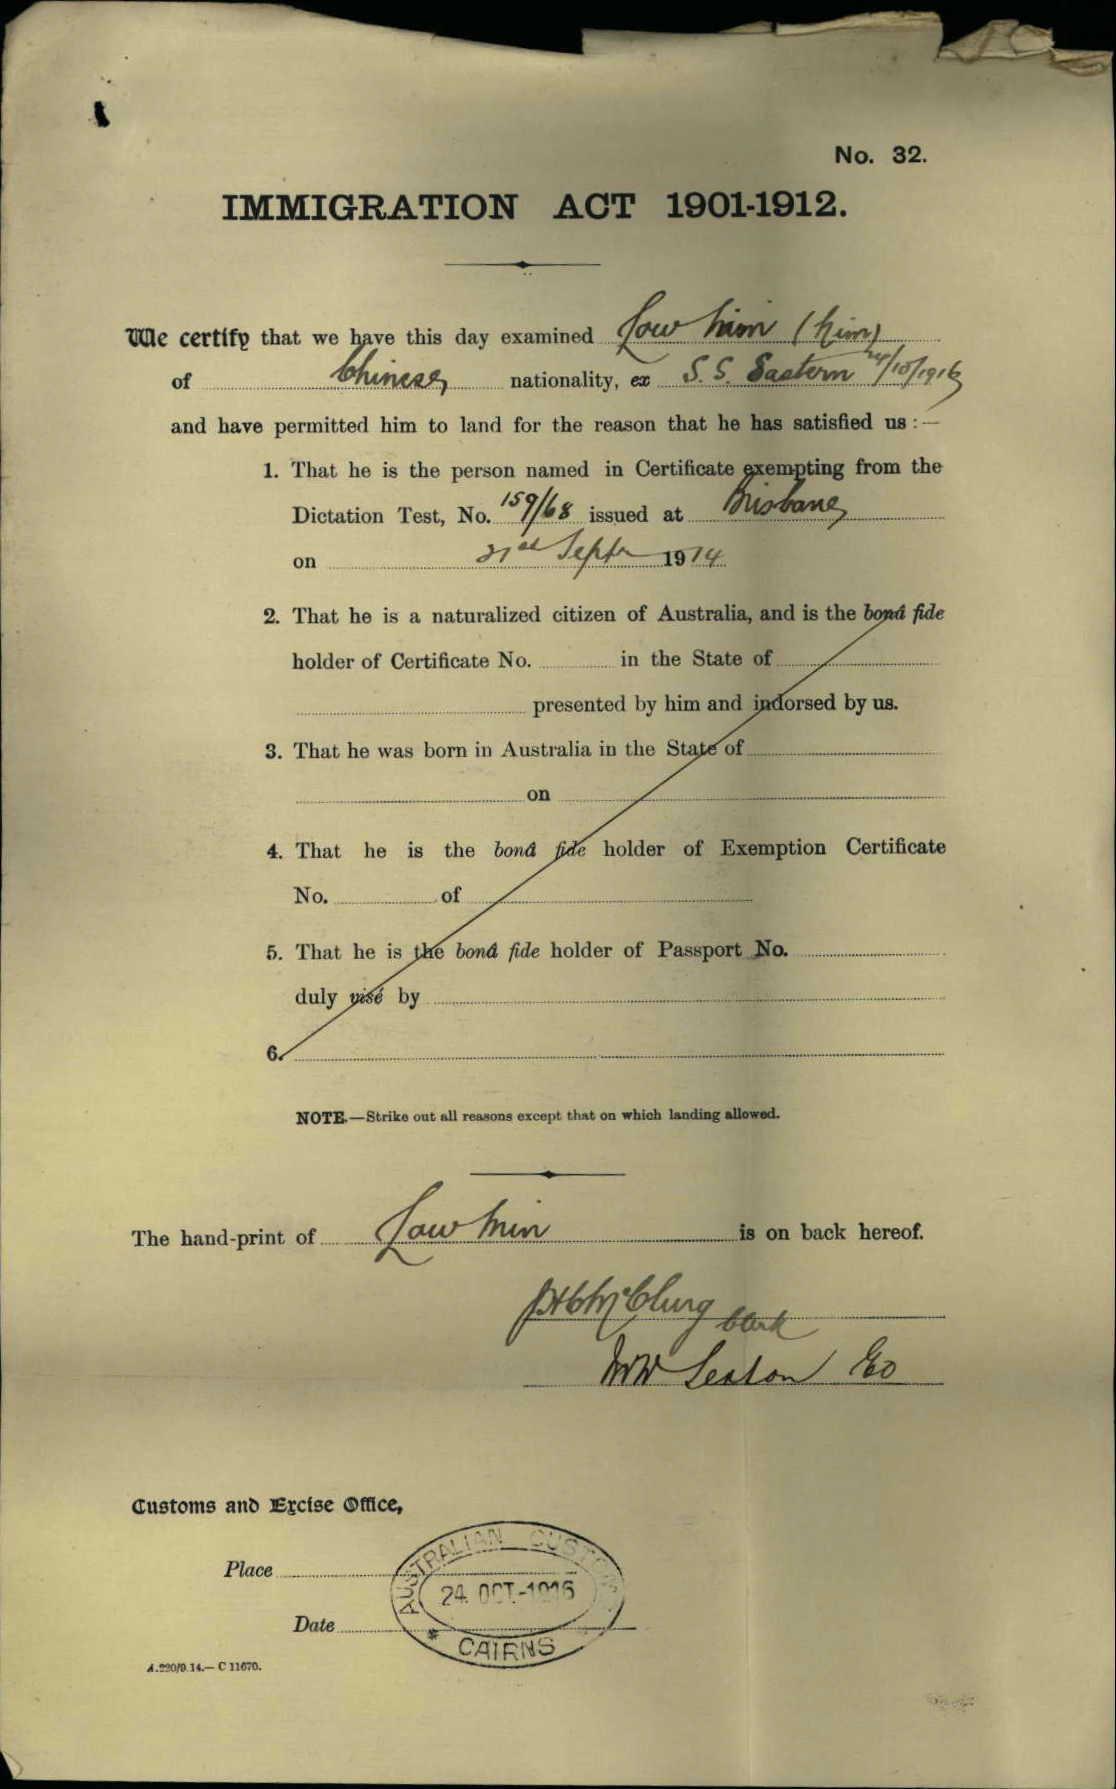 No. 32.
IMMIGRATION ACT 1901-1912.
We certify that we have this day examined Low Min (Min)
of Chinese nationality, ex S.S. Eastern 24/10/1916
and have permitted him to land for the reason that he has satisfied us :—
1. That he is the person named in Certificate exempting from the
Dictation Test, No. 159/68 issued at Brisbane
on 21st Septr 1914
2. That he is a naturalized citizen of Australia, and is the bonâ fide
holder of Certificate No. in the State of
presented by him and indorsed by us.
3. That he was born in Australia in the State of
on
4. That he is the bonâ fide holder of Exemption Certificate
No. of
5. That he is the bonâ fide holder of Passport No.
duly visé by
6.
NOTE.—Strike out all reasons except that on which landing allowed.
The hand-print of Low Min is on back hereof.
McClurg Clerk
Seaton EO
Customs and Excise Office,
Place
Date
AUSTRALIAN CUSTOMS
24 OCT.-1916
* CAIRNS
A.220/9.14.—C 11670.